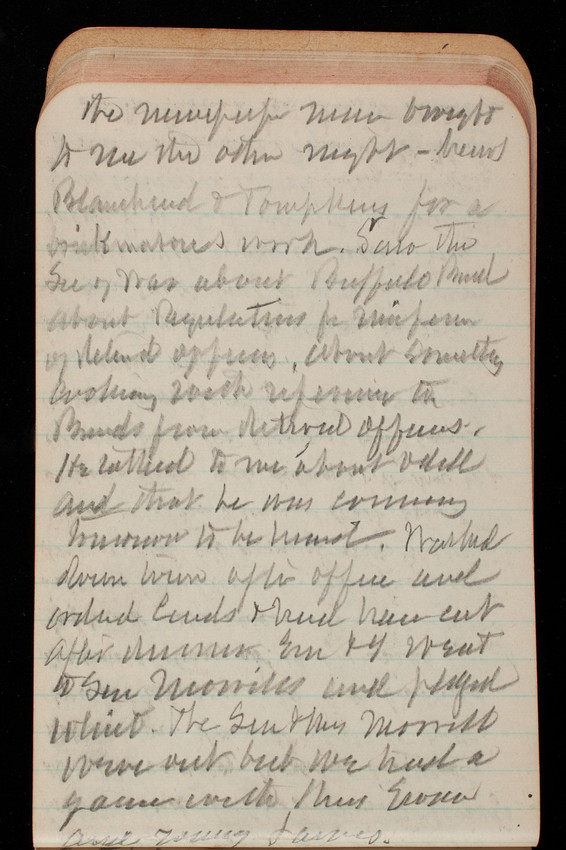 the newspaper men brought
to me the other night - 
Blanchard & Tompkins for a
work. Saw the
Sec of War about Buffalo Band
about Regulations for Uniform
of retired officers, about something
looking with reference to
Bonds from detrved officers.
He talked to me about Odell
and that he was coming
tomorrow to be here. Walked
down town after office and
ordered Cards & had hair cut
after dinner Em & I went
to Gen Morrills and played
whist. The Gen & Mrs Morrill
were out but we had a
game with Mrs
and young James.